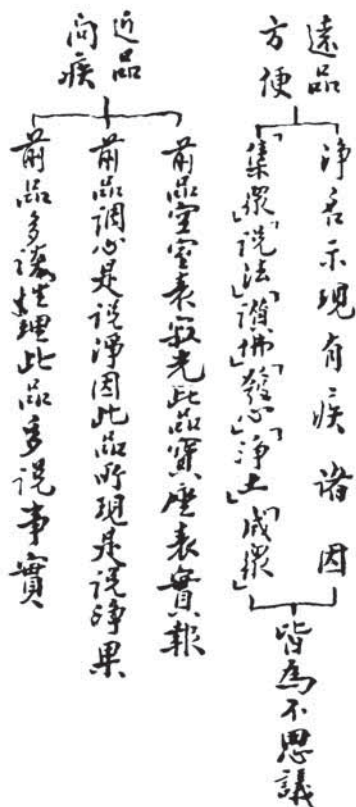 遠品
方便
淨名示現有疾諸因
「集眾」「說法」「讚佛」「發心」「淨土」「成眾」
皆為不思議
近品
問疾
前品空室表寂光此品寶座表實報
前品調心是說淨因此品所現是說淨果
前品多談性理此品多說事實